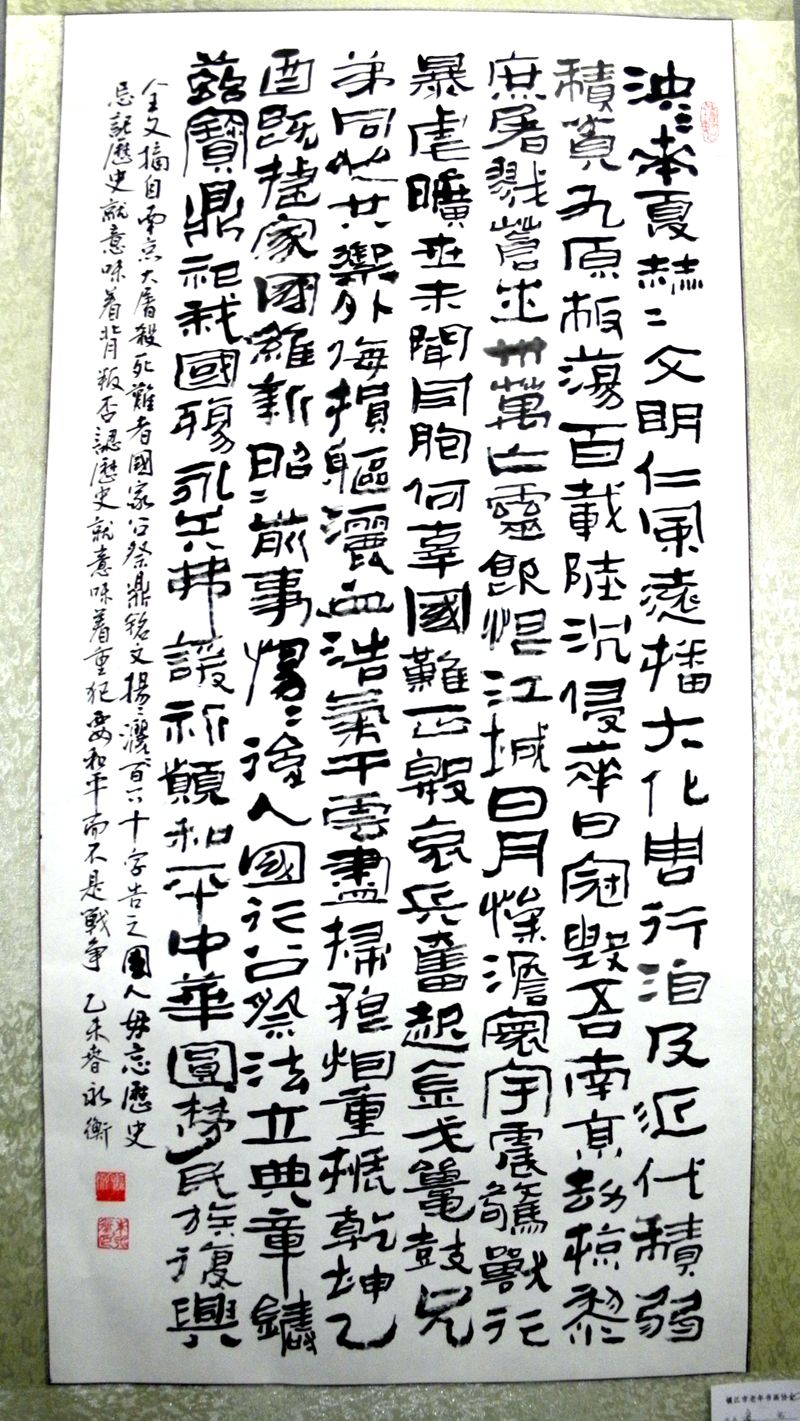 泱〻華夏赫〻文明仁風遠播大化周行洎及近代積弱
積貧九原板蕩百載陸沉侵華日寇毀吾南京劫掠黎
庶屠戮蒼生卅萬亡靈飲恨江城日月慘澹寰宇震驚獸行
暴虐曠世未聞同胞何辜國難正殷哀兵奮起金戈鼉鼓兄
弟同心共禦外侮損軀灑血浩氣干雲盡掃狼烟重振乾坤乙
酉既捷家國維新昭〻前事惕〻後人國行公祭法立典章鑄
茲寶鼎祀我國殤永矢弗諼祈願和平中華圓夢民族復興
全文摘自南京大屠殺死難者國家公祭鼎銘文揚〻灑百六十字告之國人毋忘歷史
忘記歷史就意味着背叛否認歷史就意味着重犯要和平而不是戰争 乙未春永衡
镇江市老年书画协会